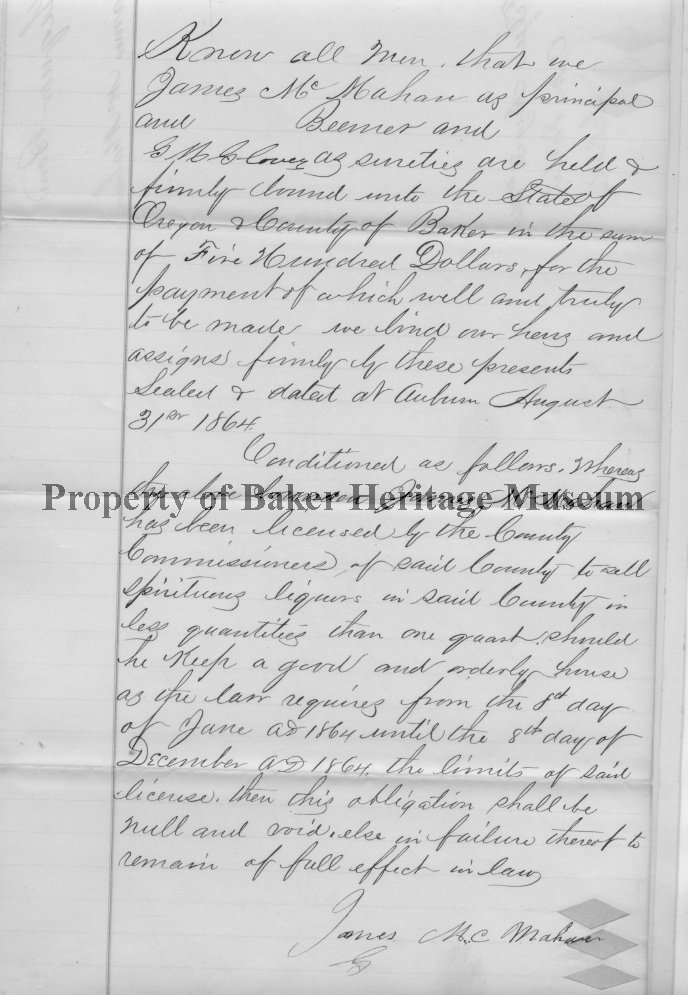 Know all Men, that we
James Mc Mahan as principal
and Beemer and
G M Glover as sureties are held &
firmly bound unto the State of
Oregon & County of Baker in the sum
of Five Hundred Dollars, for the
payment of which well and truly
to be made we bind our heirs and
assigns firmly by these presents
Sealed & dated at Auburn August
31st 1864.
Conditioned as follows. Whereas
the above
Property of Baker Heritage Museum
has been licensed by the County
Commissioners of said County to sell
spirituous liquors in said County in
less quantities than one quart. should
he Keep a good and orderly house
as the law requires from the 8th day
of June AD 1864 until the 8th day of
December AD 1864. the limits of said
license. then this obligation shall be
null and void, else in failure thereof to
remain of full effect in law
James Mc Mahan
G